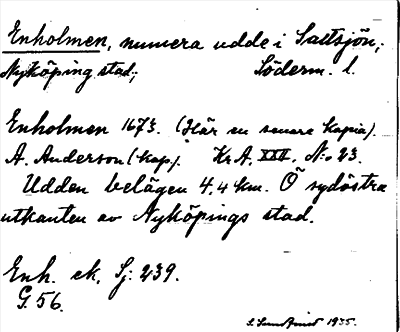 Enholmen, numera udde i Saltsjön;
Nyköping stad; Söderm. l.
Enholmen 1673. (Här en senare kopia).
A. Anderson (kop.). Kr A. XXX. No 23.
Udden belägen 4.4 km. Ö sydöstra
utkanten av Nyköpings stad.
Enh. ek. Sj: 239.
G. 56.
S. Sundqvist 1935.